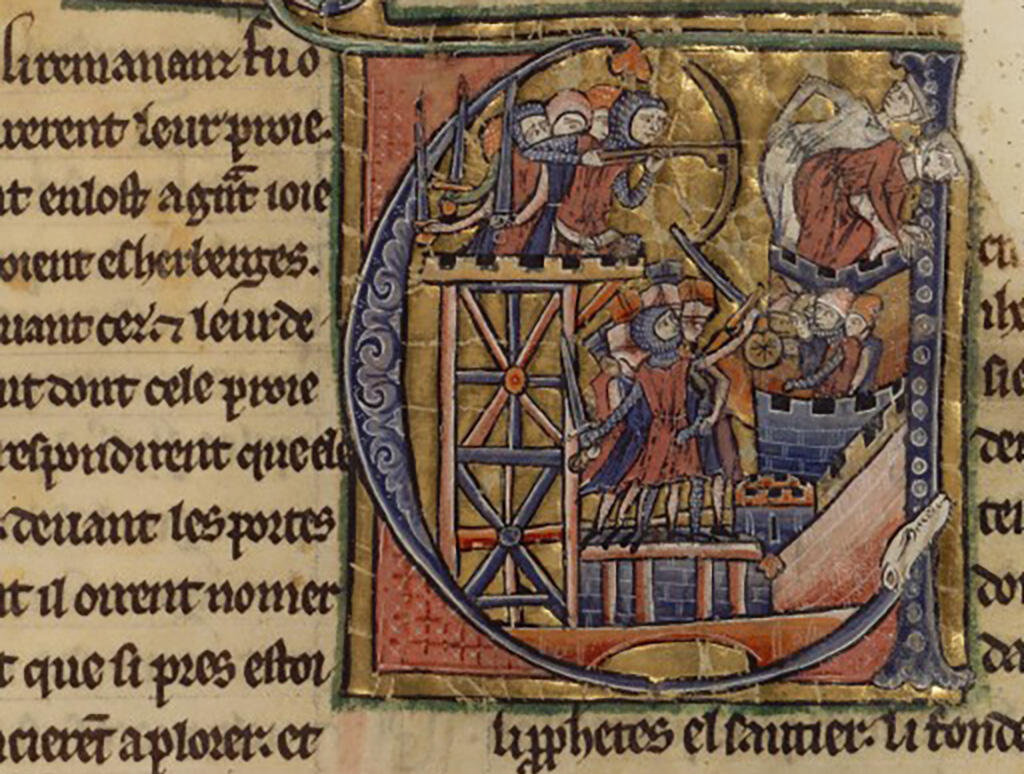 li remananz fuo
uerent leur proie.
nt en lost a gñt ioie
oient es herberges.
leur de
ut dont cele proie
respondirent que ele
deuant les portes
nt il oirent nomer
t que si pres estoi
cierẽt a plorer. et
li ꝓphetes el sautier. li